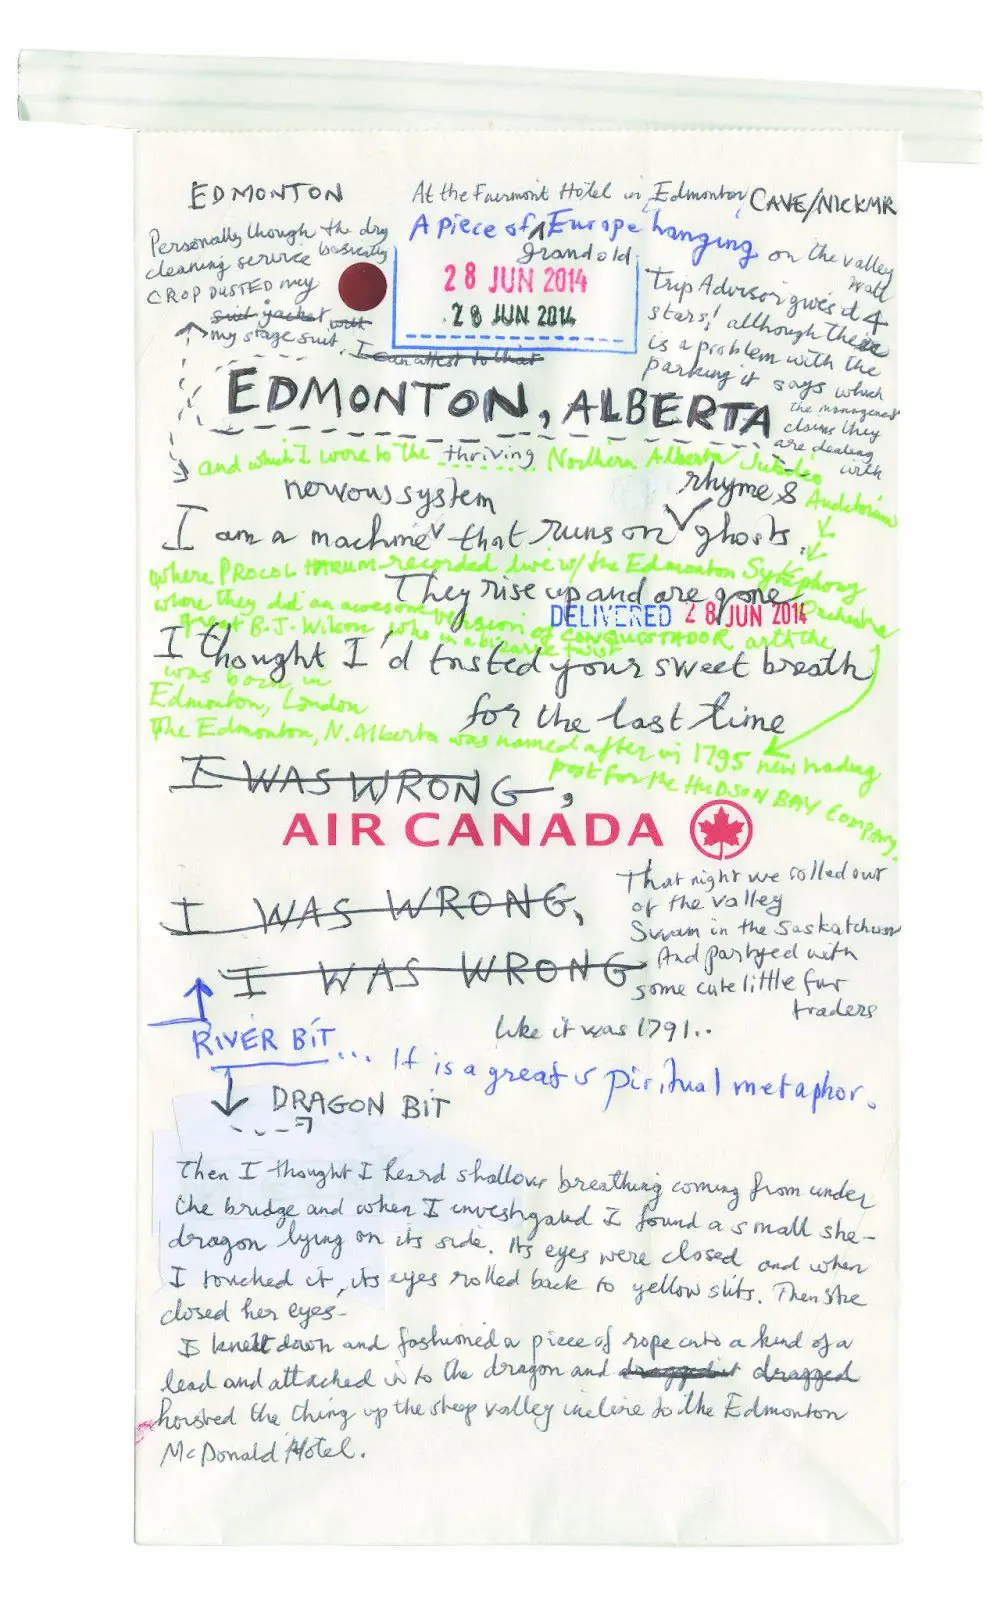 EDMONTON
At the Fairmont Hotel in Edmonton, CAVE/NICKMR
A piece of ^ Europe hanging on the valley
grand old
wall
Personally though the dry
cleaning service basically
CROP DUSTED my
suit jacket with
my stage suit. I can attest to that
28 JUN 2014
28 JUN 2014
Trip Advisor gives it 4
stars! although there
is a problem with the
parking it says which
the management
claims they
are dealing
with
EDMONTON, ALBERTA
and which I wore to the thriving Northern Alberta Jubilee
Auditorium
nervous system
rhyme &
I am a machine that runs on ghosts.
where PROCOL HARUM recorded live w/ the Edmonton Symphony
Orchestra
They rise up and are gone
where they did an awesome version of CONQUISTADOR with the
DELIVERED 28 JUN 2014
great B.J. Wilson who in a bizarre twist
I thought I'd tasted your sweet breath
was born in
Edmonton, London
for the last time
The Edmonton, N. Alberta was named after in 1795 new trading
post for the HUDSON BAY Company.
I WAS WRONG,
AIR CANADA
I WAS WRONG,
I WAS WRONG
That night we rolled out
of the valley
Swam in the Saskatchewan
And partyed with
some cute little fur
traders
like it was 1791..
RIVER BIT... It is a great spiritual metaphor.
DRAGON BIT
Then I thought I heard shallow breathing coming from under
the bridge and when I investigated I found a small she-
dragon lying on its side. Its eyes were closed and when
I touched it, its eyes rolled back to yellow slits. Then she
closed her eyes-
I knelt down and fashioned a piece of rope into a kind of a
lead and attached it to the dragon and dragged it dragged
hoisted the thing up the steep valley incline to the Edmonton
McDonald Hotel.